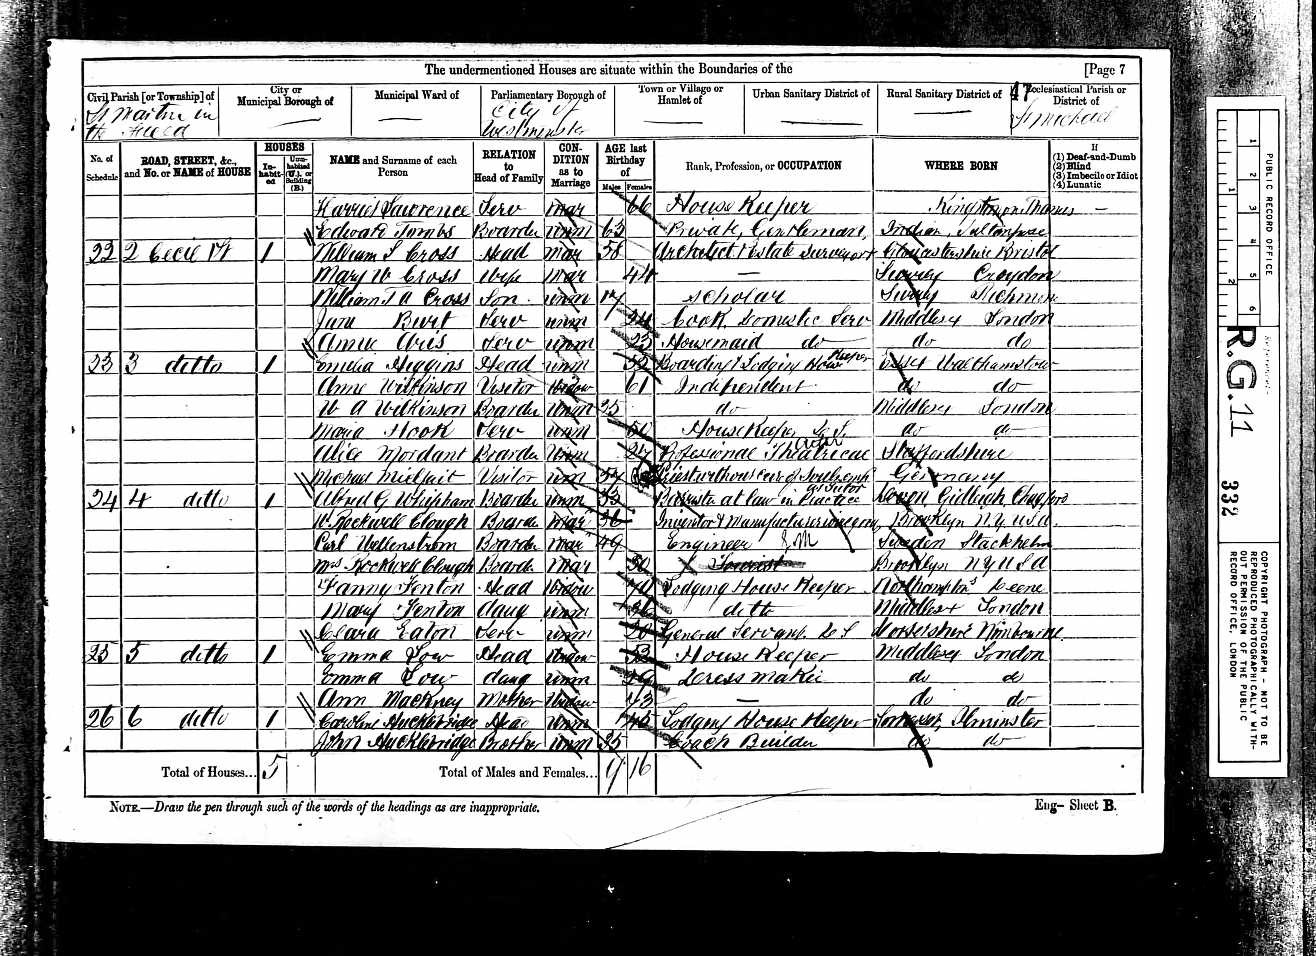 The undermentioned Houses are situate within the Boundaries of the [Page 7
Civil Parish [or Township] of City or Municipal Borough of Municipal Ward of Parliamentary Borough of Town or Village or Hamlet of Urban Sanitary District of Rural Sanitary District of Ecclesiastical Parish or District of
St Martin in the Field City of Westminster 47 St Michael
No. of Schedule ROAD, STREET, &c., and No. or NAME of HOUSE HOUSES In-habit-ed Un-habited (U.), or Building (B.) NAME and Surname of each Person RELATION to Head of Family CON-DITION as to Marriage AGE last Birthday of Males Females Rank, Profession, or OCCUPATION WHERE BORN If (1) Deaf-and-Dumb (2) Blind (3) Imbecile or Idiot (4) Lunatic
Harriet Lawrence Serv mar 66 House Keeper Kingston on Thames —
Edward Tombs Boarder unm 63 Private Gentleman,
22 2 Cecil St 1 William S Cross Head mar 58 Architect & Estate Surveyor Gloucestershire Bristol
Mary W Cross Wife mar 44 — Surrey Croydon
William Cross Son unm 17 Scholar Surrey
Jane Burt Serv unm 24 Cook Domestic Serv Middlesex London
Annie Aris Serv unm 23 Housemaid do do do
23 3 ditto 1 Emelia Higgins Head unm 52 Boarding & Lodging House Keeper Essex Walthamstow
Anne Wilkinson Visitor Widow 61 Independent do do
W A Wilkinson Boarder unm 25 do Middlesex London
Maria Hook Serv unm 50 House Keeper do do
Alice Mordant Boarder unm 24 Professional Theatrical Staffordshire
Visitor unm 57 Germany
24 4 ditto 1 Alfred G Whipham Boarder unm 53 Barrister at law in Practice Devon Gidleigh Chagford
W. Rockwell Clough Boarder mar 36 Inventor & Manufacturer Brooklyn N.Y. U.S.A.
Carl Wellenstrom Boarder mar 49 Engineer Sweden Stockholm
Mrs Rockwell Clough Boarder mar 30 Tourist Brooklyn N Y U S A
Fanny Fenton Head Widow Lodging House Keeper Northamptons Deene
Mary Fenton daug unm 36 ditto Middlesex London
Clara Eaton Serv unm 20 General Servant Dorsetshire Wimbourne
25 5 ditto 1 Emma Low Head Widow 53 House Keeper Middlesex London
Emma Low daug unm 29 Dress maker do do
Ann Mackney Mother Widow 73 — do do
26 6 ditto 1 Caroline Huckbridge Head unm 45 Lodging House Keeper Somerset, Ilminster
John Huckbridge Brother unm 35 Coach Builder do do
Total of Houses... 5 Total of Males and Females... 9 16
NOTE.—Draw the pen through such of the words of the headings as are inappropriate. Eng- Sheet B.
PUBLIC RECORD OFFICE
1 2 3 4 5 6
1 2
R.G. 11
332
COPYRIGHT PHOTOGRAPH - NOT TO BE REPRODUCED PHOTOGRAPHICALLY WITHOUT PERMISSION OF THE PUBLIC RECORD OFFICE, LONDON